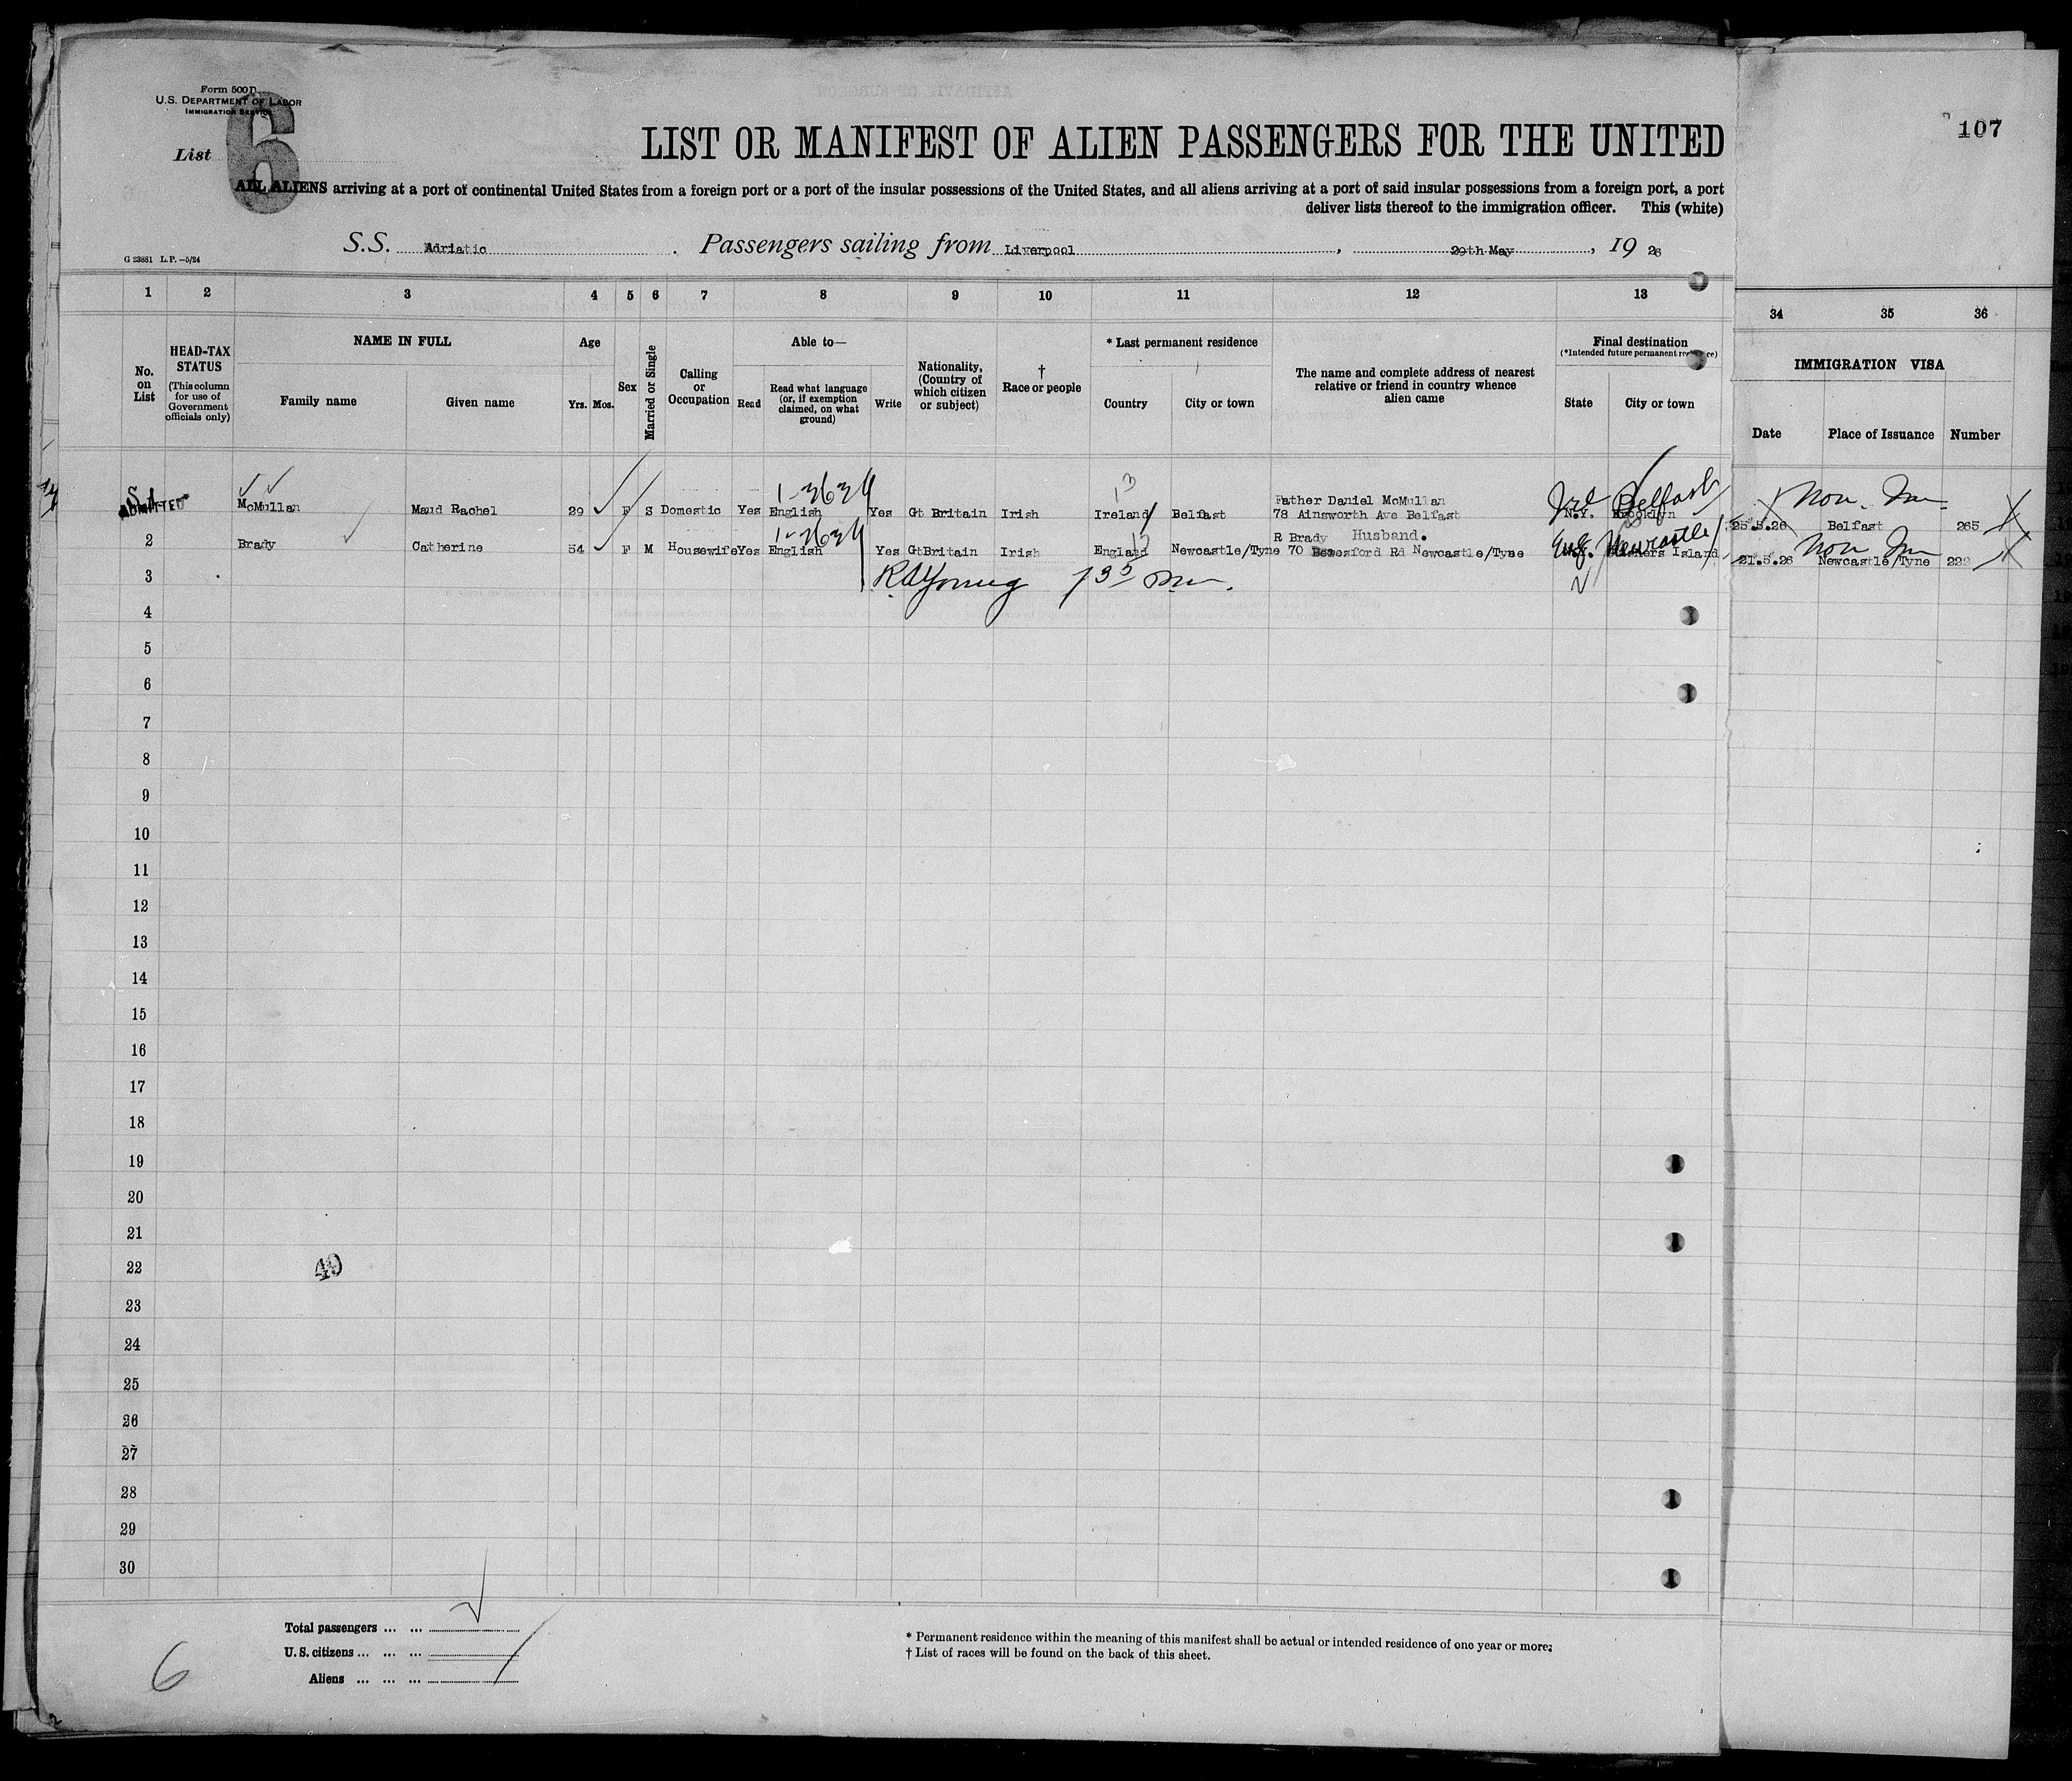 Form 500 D
U.S. DEPARTMENT OF LABOR
IMMIGRATION SERVICE
6
List
107
LIST OR MANIFEST OF ALIEN PASSENGERS FOR THE UNITED
ALL ALIENS arriving at a port of continental United States from a foreign port or a port of the insular possessions of the United States, and all aliens arriving at a port of said insular possessions from a foreign port, a port
deliver lists thereof to the immigration officer. This (white)
S.S. Adriatic. Passengers sailing from Liverpool, 29th May, 19 26
G 23881 L.P.—5/24
1 2 3 4 5 6 7 8 9 10 11 12 13 34 35 36
No. on List
HEAD-TAX STATUS
(This column for use of Government officials only)
NAME IN FULL
Family name Given name
Age
Yrs. Mos.
Sex
Married or Single
Calling or Occupation
Able to—
Read
Read what language (or, if exemption claimed, on what ground)
Write
Nationality, (Country of which citizen or subject)
† Race or people
* Last permanent residence
Country City or town
The name and complete address of nearest relative or friend in country whence alien came
Final destination
(*Intended future permanent residence)
State City or town
IMMIGRATION VISA
Date Place of Issuance Number
ADMITTED
1-3634
13
Ire Belfast
Non. Im
McMullan Maud Rachel 29 F S Domestic Yes English Yes Gt Britain Irish Ireland Belfast Father Daniel McMullan
78 Ainsworth Ave Belfast N.Y. Brooklyn 25.5.26 Belfast 265
1-3634
Eng Newcastle
Non Im
2 Brady Catherine 54 F M Housewife Yes English Yes Gt Britain Irish England Newcastle/Tyne R Brady Husband.
70 Beresford Rd Newcastle/Tyne Fishers Island 21.5.26 Newcastle/Tyne 222
3 RA Young
4
5
6
7
8
9
10
11
12
13
14
15
16
17
18
19
20
21
22 40
23
24
25
26
27
28
29
30
Total passengers ... ...
U.S. citizens ... ... ...
Aliens ... ... ...
6
* Permanent residence within the meaning of this manifest shall be actual or intended residence of one year or more.
† List of races will be found on the back of this sheet.
2